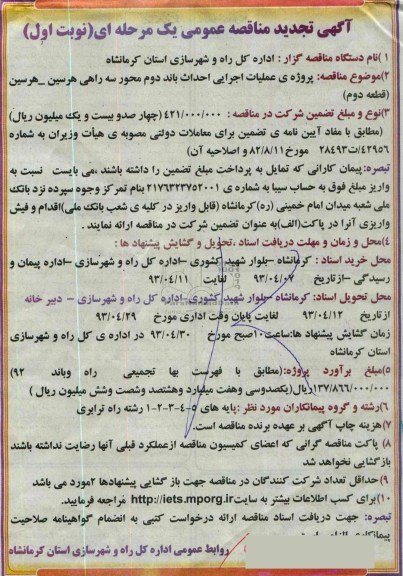 آگهی تجدید مناقصه عمومی یک مرحله ای(نوبت اول)
۱)نام دستگاه مناقصه گزار : اداره کل راه و شهرسازی استان کرمانشاه
۲)موضوع مناقصه: پروژه ی عملیات اجرایی احداث باند دوم محور سه راهی هرسین _هرسین
(قطعه دوم)
۳)نوع و مبلغ تضمین شرکت در مناقصه : ۴۲۱/۰۰۰/۰۰۰ (چهار صدو بیست و یک میلیون ریال)
(مطابق با مفاد آیین نامه ی تضمین برای معاملات دولتی مصوبه ی هیأت وزیران به شماره
۴۲۹۵۶/ت۲۸۴۹۳ مورخ۸۲/۸/۱۱ و اصلاحیه آن)
تبصره: پیمان کارانی که تمایل به پرداخت مبلغ تضمین را داشته باشند ،می بایست نسبت به
واریز مبلغ فوق به حساب سیبا به شماره ی ۲۱۷۶۳۲۳۷۵۲۰۰۱ بنام تمرکز وجوه سپرده نزد بانک
ملی شعبه میدان امام خمینی (ره)کرمانشاه (قابل واریز در کلیه ی شعب بانک ملی)اقدام و فیش
واریزی آنرا در پاکت(الف)به عنوان تضمین شرکت در مناقصه ارائه نمایند .
۴)محل و زمان و مهلت دریافت اسناد ،تحویل و گشایش پیشنهاد ها :
محل خرید اسناد : کرمانشاه –بلوار شهید کشوری –اداره کل راه و شهرسازی –اداره پیمان و
رسیدگی –از تاریخ ۹۳/۰۴/۰۷ لغایت ۹۳/۰۴/۱۱
محل تحویل اسناد: کرمانشاه –بلوار شهید کشوری–اداره کل راه و شهرسازی – دبیر خانه
از تاریخ ۹۳/۰۴/۱۲ لغایت پایان وقت اداری مورخ ۹۳/۰۴/۲۹
زمان گشایش پیشنهاد ها:ساعت۱۰صبح مورخ ۹۳/۰۴/۳۰ در اداره ی کل راه و شهرسازی
استان کرمانشاه
۵)مبلغ برآورد پروژه:(مطابق با فهرست بها تجمیعی راه وباند ۹۲)
۱۳۷/۸۶۶/۰۰۰/۰۰۰ریال(یکصدوسی وهفت میلیارد وهشتصد وشصت وشش میلیون ریال )
۶)رشته و گروه پیمانکاران مورد نظر :پایه های ۵-۴-۳-۲-۱ رشته راه ترابری
۷)هزینه چاپ آگهی بر عهده برنده مناقصه است.
۸) پاکت مناقصه گرانی که اعضای کمیسیون مناقصه ازعملکرد قبلی آنها رضایت نداشته باشند
بازگشایی نخواهد شد
۹)حداقل تعداد شرکت کنندگان در مناقصه جهت باز گشایی پیشنهادها ۲مورد می باشد
۱۰)برای کسب اطلاعات بیشتر به سایت http://iets.mporg.ir مراجعه فرمایید.
تبصره: جهت دریافت اسناد مناقصه ارائه درخواست کتبی به انضمام گواهینامه صلاحیت
روابط عمومی اداره کل راه و شهرسازی استان کرمانشاه